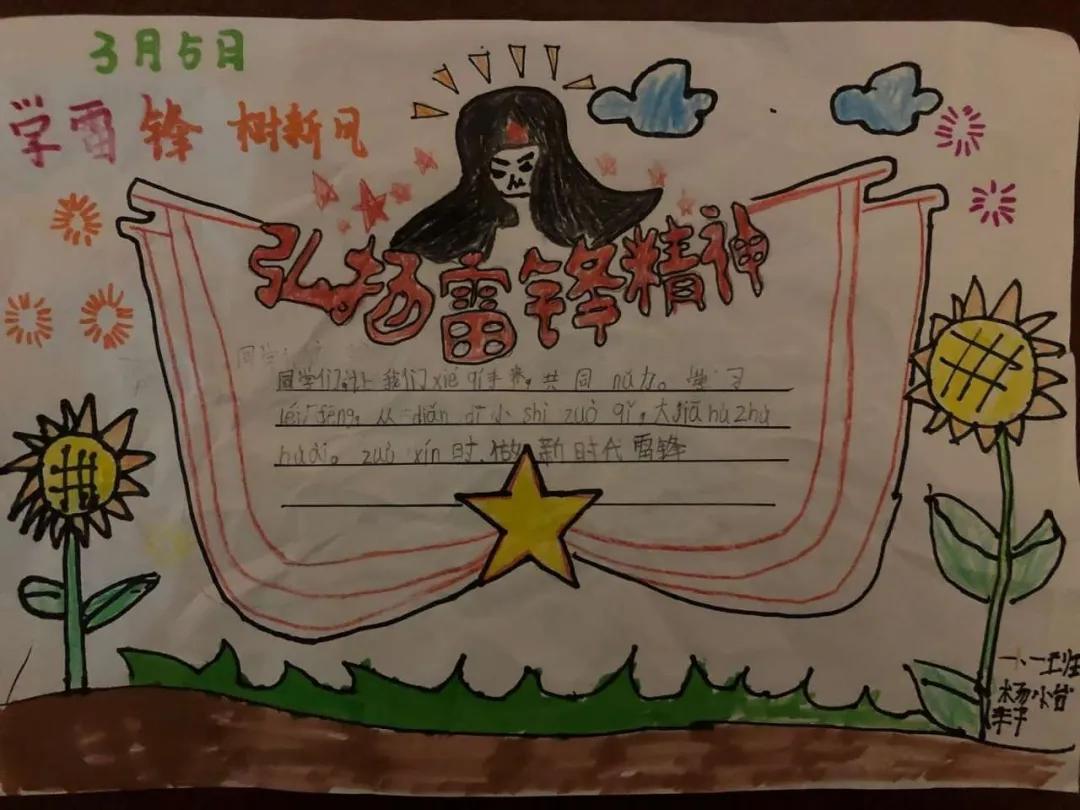 3月5日
学雷锋 树新风
弘扬雷锋精神
同学们,让我们xié qǐ手来,共同nǔ力。学习
léi fēng,从diǎn dī小shì zuò qǐ,大jiā hù zhù
hù ài。zuò xīn时,做新时代雷锋
一、一班
杨小